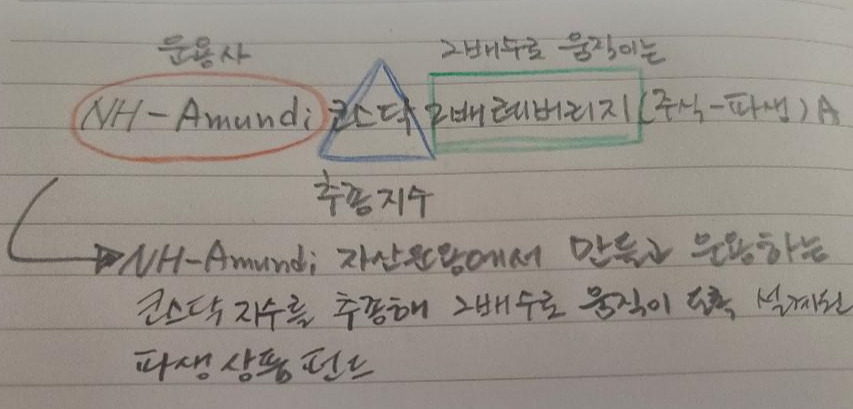 운용사 2배수로 움직이는
NH-Amundi 코스닥 2배레버리지(주식-파생)A
추종지수
NH-Amundi 자산운용에서 만들고 운용하는
코스닥 지수를 추종해 2배수로 움직이도록 설계된
파생상품펀드